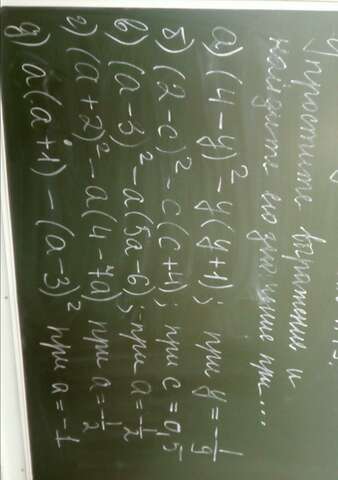 Упростите выражения и
найдите его значение при...
а) (4-y)² - y(y+1); при y = -1/9
б) (2-c)² - c(c+4); при c = 0,5
в) (a-3)² - a(5a-6); при a = -1/2
г) (a+2)² - a(4-7a) при a = -1/2
д) a(a+1) - (a-3)² при a = -1